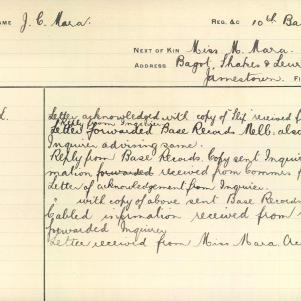 NAME J. C. Mara. REG. &C 10th Ba
NEXT OF KIN Miss M. Mara.
ADDRESS Bagot, Shakes & Lewis
Jamestown. FI
Letter acknowledged with copy of "Slf" received f
Reply from Inquirer
Letter forwarded Base Records Melb. also
Inquirer advising same.
Reply from Base Records. Copy sent Inquir
mation forwarded received from Commrs f
Letter of acknowledgement from Inquirer.
" with copy of above sent Base Records
Cabled information received from
forwarded Inquirer
Letter received from Miss Mara. Ac